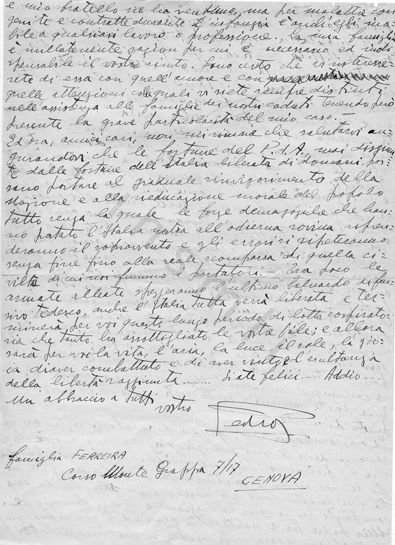 e mio fratello ne ha ventuno, ma per malattia con-
genite e contratte durante l'infanzia è anch'egli ina-
bile a qualsiasi lavoro o professione. La mia famiglia
è nullatenente, ragion per cui è necessario ed indi-
spensabile il vostro aiuto. Sono certo che vi interesse-
rete di essa con quell'amore e con
quelle attenzioni con le quali vi siete sempre distinti
nelle assistenza alle famiglie dei nostri caduti tenendo però
presente la grave particolarità del mio caso.
Ed ora, amici cari, non mi rimane che salutarvi au-
gurandovi che le fortune del P.d.A, mai disgiun-
te dalle fortune dell'Italia liberata di domani, pos-
sano portare al graduale rinvigorimento della
Nazione e alla rieducazione morale del popolo
tutto senza la quale le forze demagogiche che han-
no portato l'Italia nostra all'odierna rovina ripren-
deranno il sopravvento e gli errori si ripeteranno
senza fine fino alla reale scomparsa di quella ci-
viltà di cui noi fummo i portatori. Tra poco le
armate alleate spezzeranno l'ultimo baluardo difen-
sivo tedesco, anche l'Italia tutta verrà liberata e ter-
minerà per voi questo lungo periodo di lotta cospirato-
ria che tanto ha assottigliato le vostre file; e allora
sarà per voi la vita, l'aria, la luce, il sole, la gio-
ia di aver combattuto e di aver vinto, l'esultanza
della libertà raggiunta ...... Siate felici... Addio...
Un abbraccio a tutti
vostro
Pedro
famiglia FERREIRA
Corso Monte Grappa 7/17
GENOVA